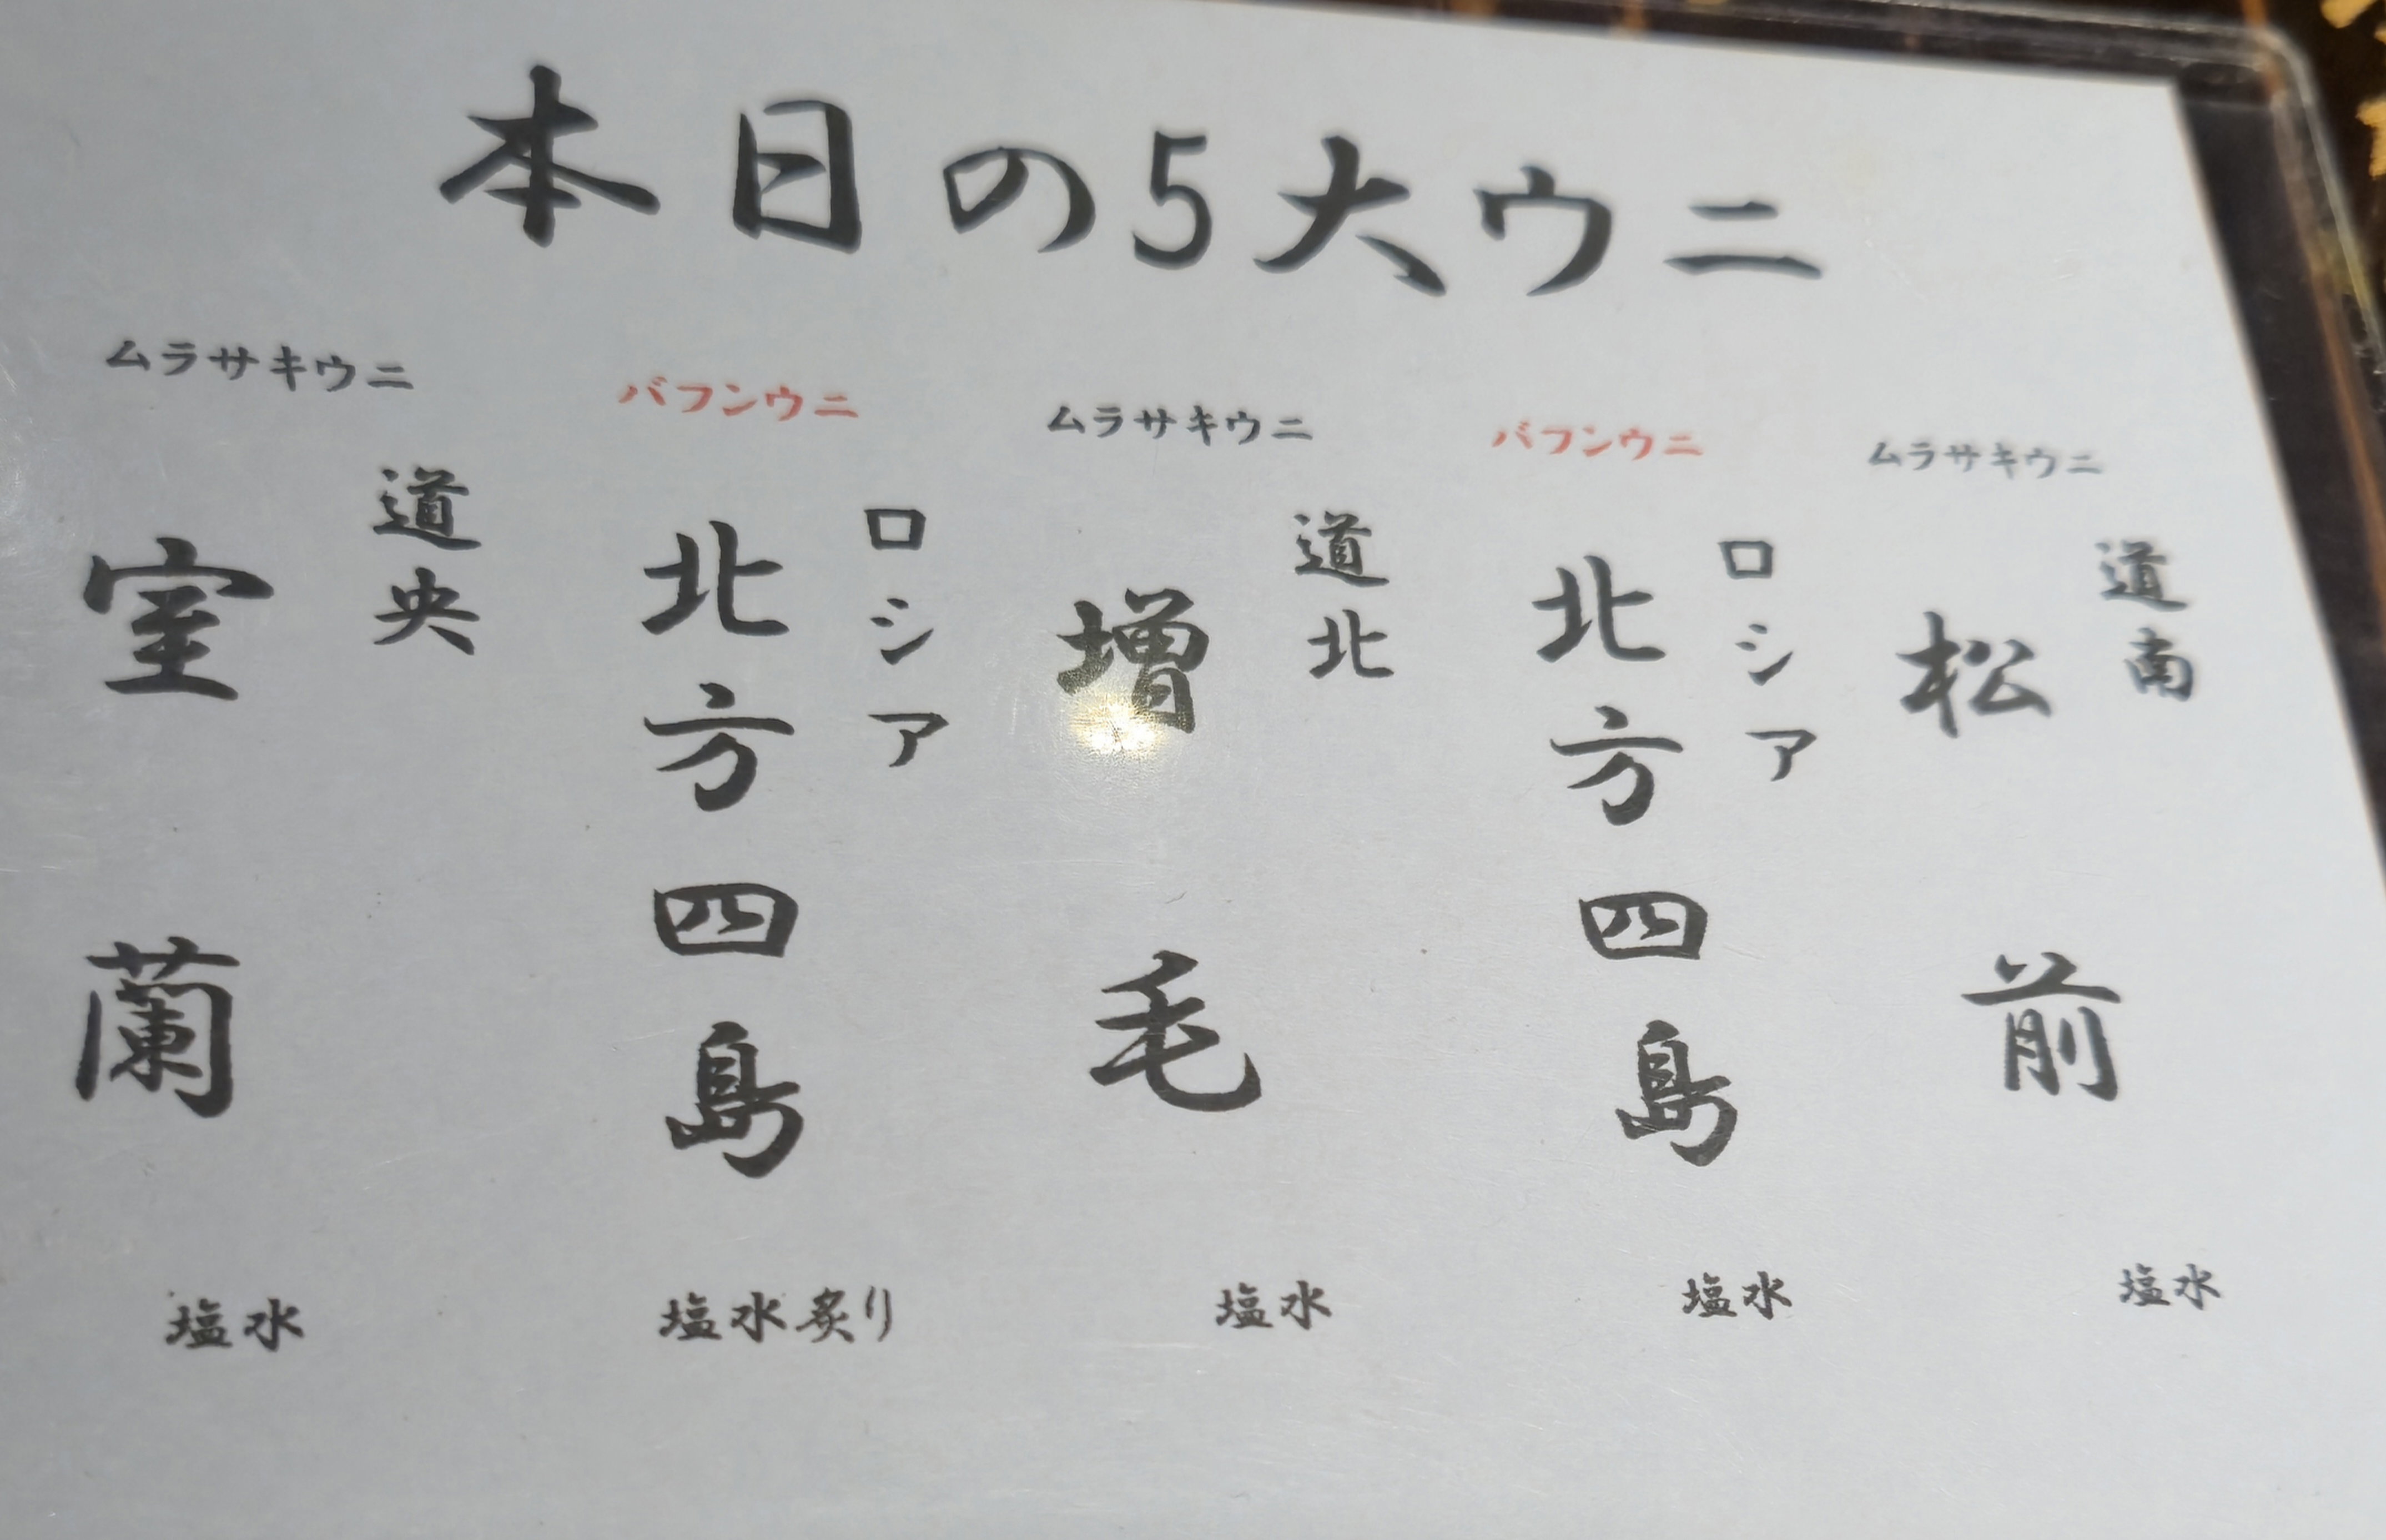 本日の5大ウニ
ムラサキウニ
道南
松前
塩水
バフンウニ
ロシア
北方四島
塩水
ムラサキウニ
道北
増毛
塩水
バフンウニ
ロシア
北方四島
塩水炙り
ムラサキウニ
道央
室蘭
塩水